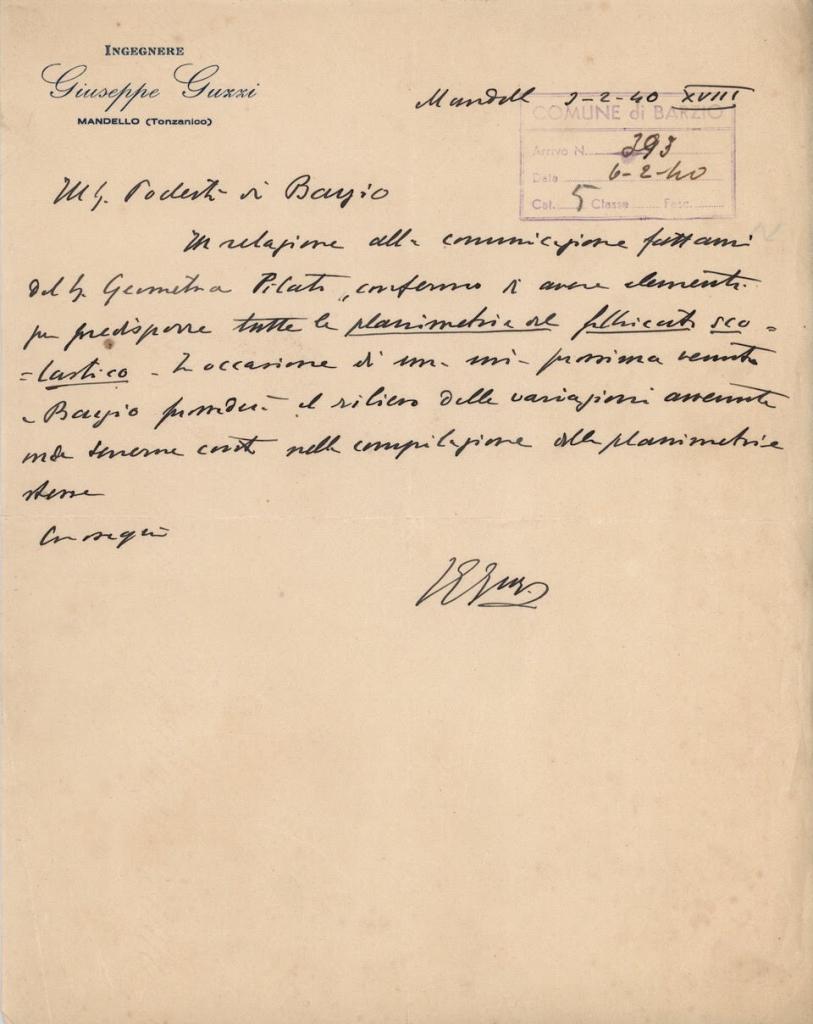 INGEGNERE
Giuseppe Guzzi
MANDELLO (Tonzanico)
Mandello 3-2-40 XVIII
COMUNE di BARZIO
Arrivo N. 393
Data 6-2-40
Cat. 5 Classe Fasc.
Ill. Sig. Podestà di Barzio
In relazione alla comunicazione fattami
dal Sig. Geometra Pilati, confermo di avere elementi
per predisporre tutte le planimetrie del fabbricato sco-
=lastico - In occasione di una mia prossima venuta
a Barzio procederò al rilievo delle variazioni avvenute
onde tenerne conto nella compilazione delle planimetrie
stesse
Con ossequi